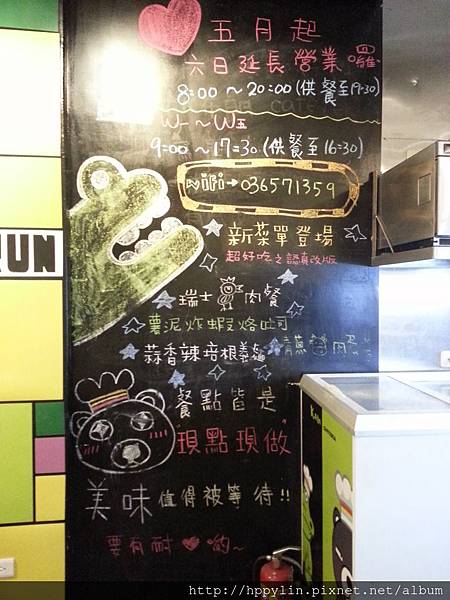 五月起
六日延長營業囉
8:00 ~ 20:00 (供餐至19:30)
W一 ~ W五
9:00 ~ 17:30 (供餐至16:30)
Wifi → 036571359
新菜單登場
超好吃之認真改版
瑞士 肉餐
薯泥炸蝦烙吐司
蒜香辣培根義麵
RUN
餐點皆是
現點現做
美味值得被等待!!
要有耐 的~
http://hppylin.pixnet.net/album